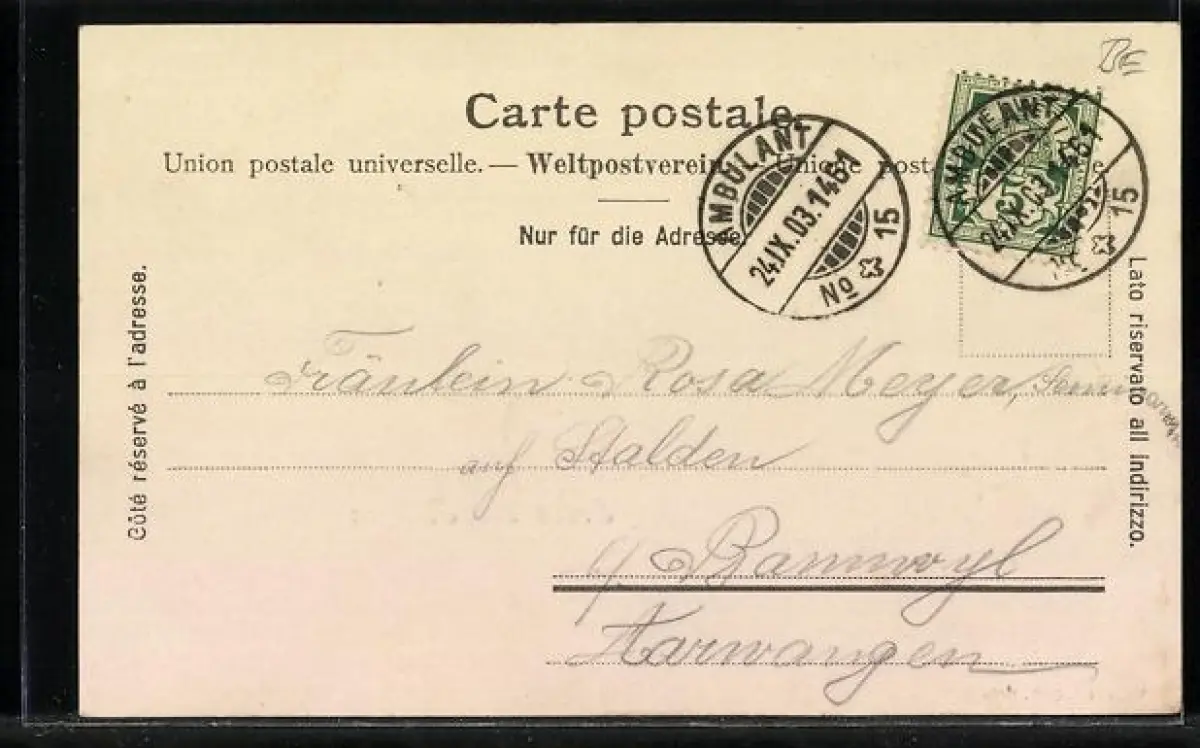 BE
Carte postale.
Union postale universelle. — Weltpostverein. — Unione post e
Nur für die Adresse.
AMBULANT
24.IX.03.1461
No 15
AMBULANT
24.IX.03.1461
No 15
5
Côté réservé à l'adresse.
Lato riservato all indirizzo.
Fräulein Rosa Meyer,
auf Stalden
Bannwyl
Aarwangen